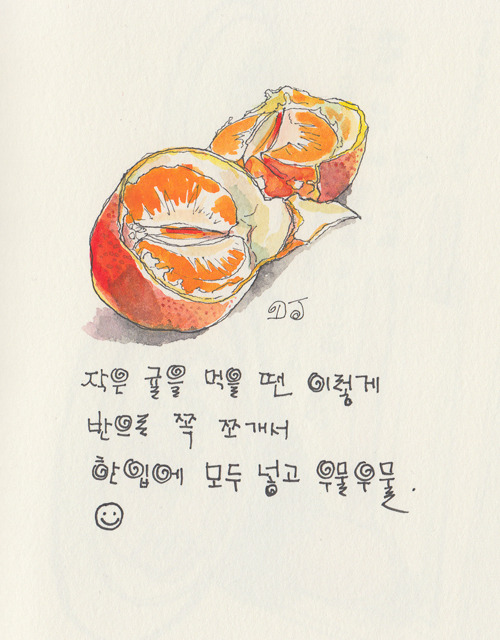 DJ
작은 귤을 먹을 땐 이렇게
반으로 쪽 쪼개서
한입에 모두 넣고 우물우물.